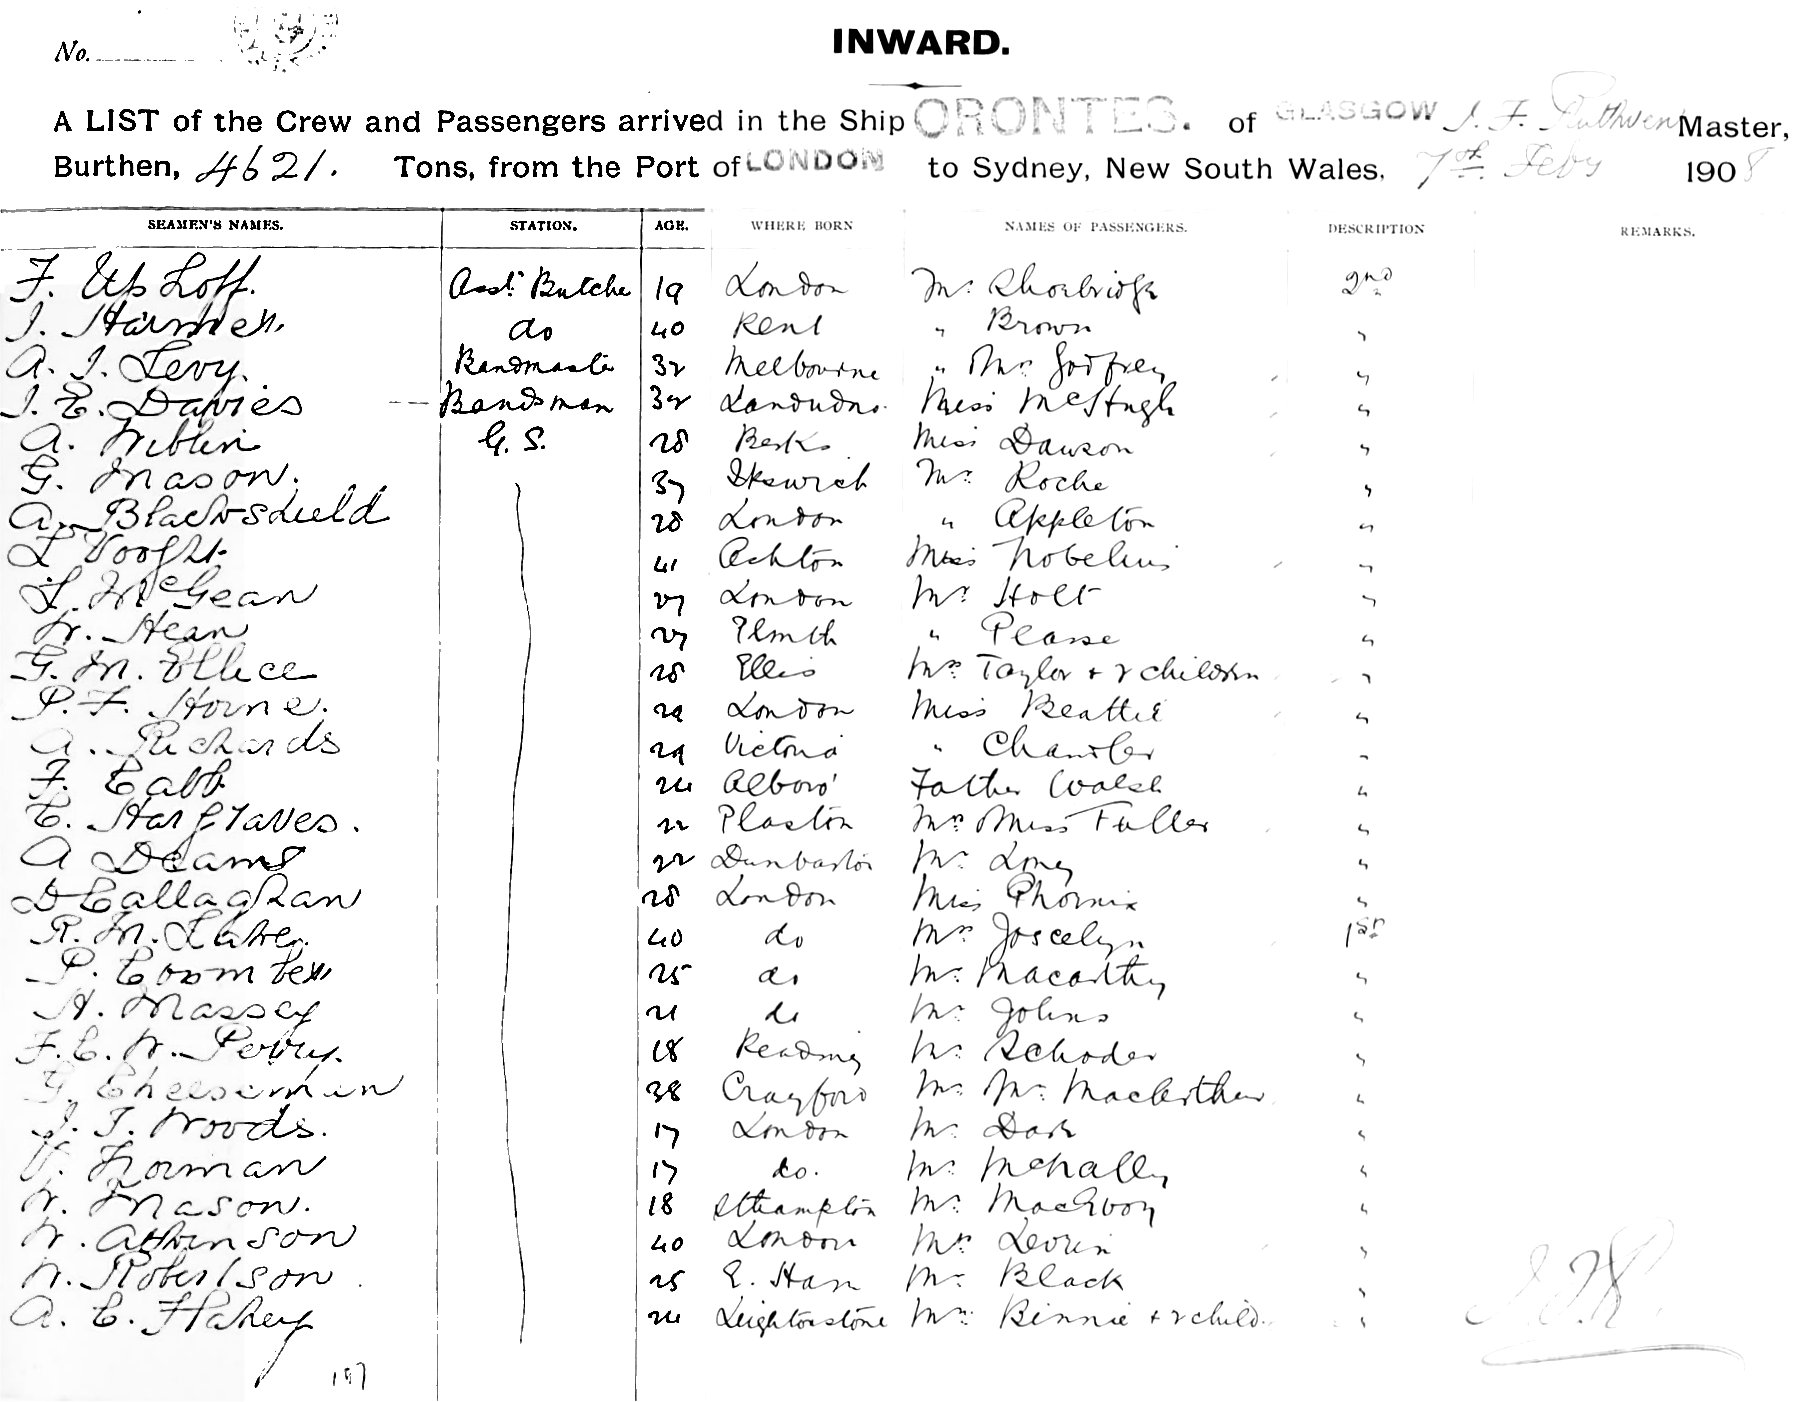 No.
INWARD.
A LIST of the Crew and Passengers arrived in the Ship ORONTES. of GLASGOW J. F. Ruthven Master,
Burthen, 4621. Tons, from the Port of LONDON to Sydney, New South Wales, 7th Feby 1908
SEAMEN'S NAMES. STATION. AGE. WHERE BORN NAMES OF PASSENGERS. DESCRIPTION REMARKS.
F. Asst. Butcher 19 London Mr. Shoebridge 2nd
J. Harmer. do 40 Kent " Brown "
A. J. Levy. Bandmaster 32 Melbourne " Mrs Godfrey "
J. E. Davies Bandsman 32 Landudno. Miss McHugh "
A. Niblin G. S. 28 Berks Miss Dawson "
G. Mason. 37 Ipswich Mr. Roche "
A. Blacksheild 28 London " Appleton "
41 Ashton Miss Nobelius "
L. McGean 27 London Mr. Holt "
W. Hean 27 Plmth " Pearse "
G. M. Ellice 28 Ellis Mrs Taylor + 2 children "
P. F. Horne. 29 London Miss Beattie "
A. Richards 29 Victoria " Chandler "
F. Cabb 24 Alboro' Father Walsh "
E. Hargraves. 22 Plaston Mrs Miss Fuller "
A Deams 22 Dunbarton Mr. Loney "
D Callaghan 28 London Miss Phoenix "
R. M. 40 do Mrs Joscelyn 1st
P. Coomber 25 do Mr. Macarthy "
H. Massey 21 do Mr. Johns "
F. C. W. Perry. 18 Reading Mr. Schoder "
G. Cheeseman 38 Crayford Mr. Mrs. MacArthur "
J. T. Woods. 17 London Mr. Dark "
Norman 17 do. Mr. McNally "
W. Mason. 18 Sthampton Mr. MacEvoy "
W. Atkinson 40 London Mrs Levien "
W. Robertson 25 E. Ham Mr. Black "
A. C. Flahey 24 Leightonstone Mrs. Binnie + 2 child. "